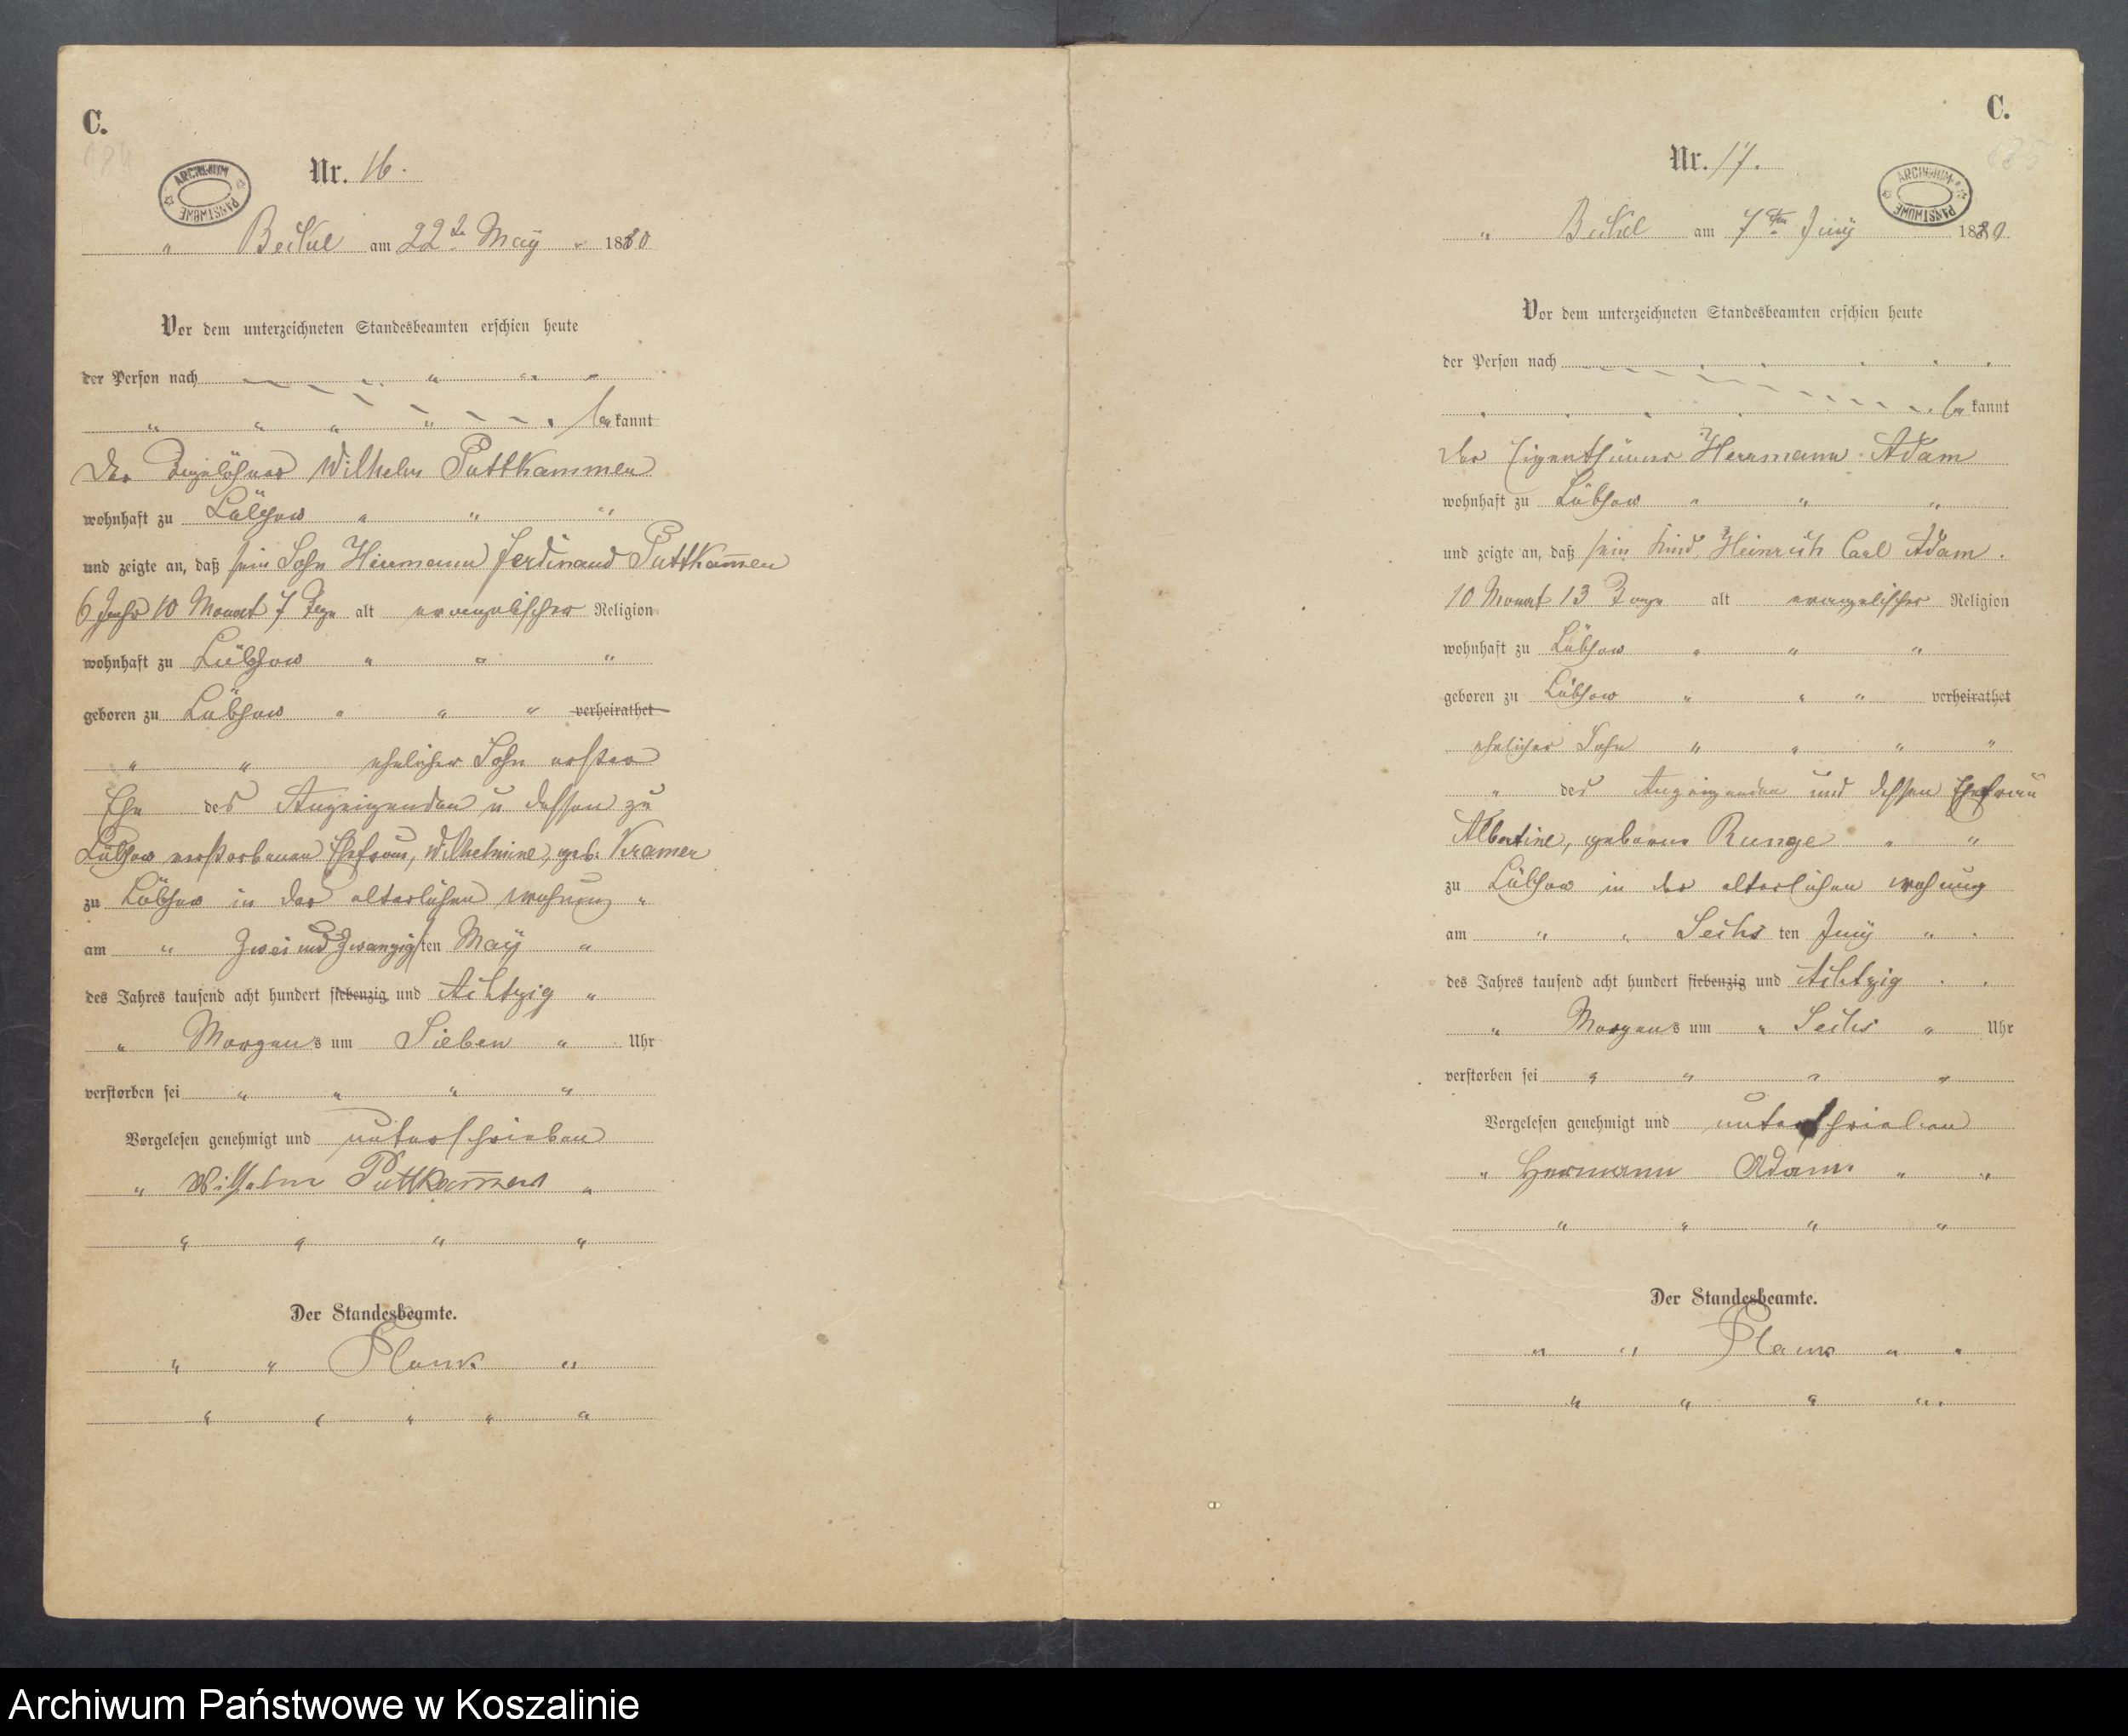 C.
184
ARCHIWUM PAŃSTWOWE
Nr. 16.
" Beckel am 22ᵗ May " 1880
Vor dem unterzeichneten Standesbeamten erschien heute
der Person nach " " "
" " " " bekannt
Der Tagelöhner Wilhelm Puttkammer
wohnhaft zu Lübzow " " "
und zeigte an, daß sein Sohn Herrmann Ferdinand Puttkam̅er
6 Jahr 10 Monat 7 Tage alt evangelischer Religion
wohnhaft zu Lübzow " " "
geboren zu Lübzow " " " verheirathet
" " ehelicher Sohn erster
Ehe des Anzeigenden u dessen zu
Lübzow verstorbenen Ehefrau, Wilhelmine, geb. Kramer
zu Lübzow in der elterlichen Wohnung "
am " Zwei und Zwanzigsten May "
des Jahres tausend acht hundert siebenzig und Achtzig "
" Morgens um Sieben " Uhr
verstorben sei " " " "
Vorgelesen genehmigt und unterschrieben
" Wilhelm Puttkam̅er "
" " " "
Der Standesbeamte.
" " Plank "
" " " " "
C.
185
ARCHIWUM PAŃSTWOWE
Nr. 17.
" Beckel am 7ten Juny 1880
Vor dem unterzeichneten Standesbeamten erschien heute
der Person nach
bekannt
Der Eigenthümer Herrmann Adam
wohnhaft zu Lübzow " " "
und zeigte an, daß sein Kind, Heinrich Carl Adam.
10 Monat 13 Tage alt evangelischer Religion
wohnhaft zu Lübzow " " "
geboren zu Lübzow " " " verheirathet
ehelicher Sohn " " " "
" des Anzeigenden und dessen Ehefrau
Albertine, geborne Runge " "
zu Lübzow in der elterlichen Wohnung
am " " Sechsten Juny "
des Jahres tausend acht hundert siebenzig und Achtzig
" Morgens um " Sechs " Uhr
verstorben sei " " " "
Vorgelesen genehmigt und unterschrieben
" Hermann Adam " "
" " " "
Der Standesbeamte.
" " Plank "
" " " "
Archiwum Państwowe w Koszalinie